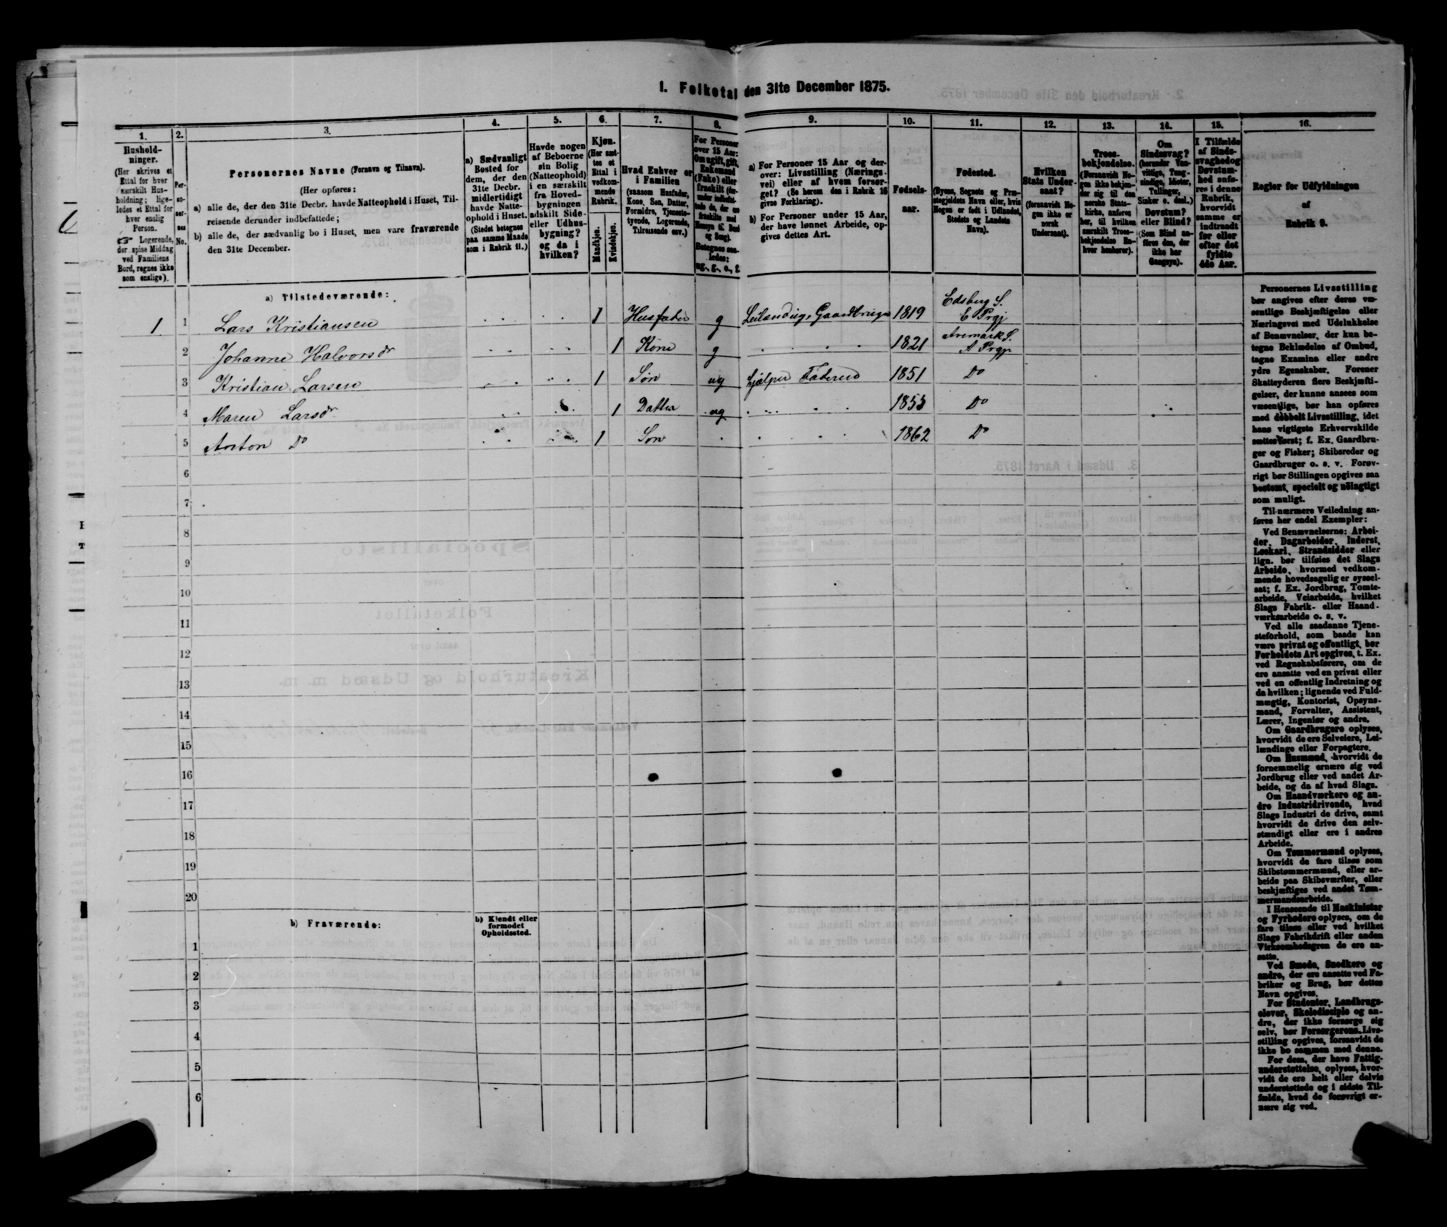 1. Folketal den 31te December 1875.
1.
2.
3.
4.
5.
6.
7.
8.
9.
10.
11.
12.
13.
14.
15.
16.
Hushold-
ninger.
(Her skrives et
Ettal for hver
særskilt Hus-
holdning; lige-
ledes et Ettal for
hver enslig
Person.
☞ Logerende,
der spise Middag
ved Familiens
Bord, regnes ikke
som enslige).
Per-
so-
ner-
nes
No.
Personernes Navne (Fornavn og Tilnavn).
(Her opføres:
a) alle de, der den 31te Decbr. havde Natteophold i Huset, Til-
reisende derunder indbefattede;
b) alle de, der sædvanlig bo i Huset, men vare fraværende
den 31te December.
a) Sædvanligt
Bosted for
dem, der den
31te Decbr.
midlertidigt
havde Natte-
ophold i Huset.
(Stedet betegnes
paa samme Maade
som i Rubrik 11.)
Havde nogen
af Beboerne
sin Bolig
(Natteophold)
i en særskilt
fra Hoved-
bygningen
adskilt Side-
eller Udhus-
bygning?
og da i
hvilken?
Kjøn.
(Her sæt-
tes et
Ettal i
vedkom-
mende
Rubrik.
Mandkjøn.
Kvindekjøn.
Hvad Enhver er
i Familien
(saasom Husfader,
Kone, Søn, Datter,
Forældre, Tjeneste-
tyende, Logerende,
Tilreisende osv.)
For Personer
over 15 Aar:
Om ugift, gift,
Enkemand
(Enke) eller
fraskilt
a) For Personer 15 Aar og der-
over: Livsstilling (Nærings-
vei) eller af hvem forsør-
get? (Se herom den i Rubrik 16
givne Forklaring).
b) For Personer under 15 Aar,
der have lønnet Arbeide, op-
gives dettes Art.
Fødsels-
aar.
Fødested.
(Byens, Sognets og Præ-
stegjeldets Navn eller, hvis
Nogen er født i Udlandet,
Stedets og Landets
Navn).
Hvilken
Stats Under-
saat?
(forsaavidt No-
gen ikke er
norsk
Undersaat).
Troes-
bekjendelse.
(Forsaavidt No-
gen ikke bekjen-
der sig til den
norske Stats-
kirke, anføres
her, til hvilken
særskilt Troes-
bekjendelse En-
hver henhører).
Om
Sindssvag?
Døvstum?
eller Blind?
I Tilfælde
af Sinds-
svaghed og
Døvstum-
hed anfø-
res i denne
Rubrik,
hvorvidt
samme er
indtraadt
før eller
efter det
fyldte
4de Aar.
Regler for Udfyldningen
af
Rubrik 9.
a) Tilstedeværende:
1 1 Lars Kristiansen 1 Husfader g Leilændig, Gaardbruger 1819 Edsberg S. E Prgj
2 Johanne Halvorsdr 1 Kone g 1821 Aremark S. A Prgj
3 Kristian Larsen 1 Søn ug hjælper Faderen 1851 Do
4 Maren Larsdr 1 Datter ug 1853 Do
5 Anton Do 1 Søn 1862 Do
6
7
8
9
10
11
12
13
14
15
16
17
18
19
20
b) Fraværende:
b) Kjendt eller
formodet
Opholdssted.
1
2
3
4
5
6
Personernes Livsstilling
bør angives efter deres væ-
sentlige Beskjæftigelse eller
Næringsvei med Udelukkelse
af Benævnelser, der kun be-
tegne Beklædelse af Ombud,
tagne Examina eller andre
ydre Egenskaber. Forener
Skatteyderen flere Beskjæfti-
gelser, der kunne ansees som
væsentlige, bør han opføres
med dobbelt Livsstilling, idet
hans vigtigste Erhvervskilde
sættes først; f. Ex. Gaardbru-
ger og Fisker; Skibsreder og
Gaardbruger o. s. v. Forøv-
rigt bør Stillingen opgives saa
bestemt, specielt og nøiagtigt
som muligt.
Til nærmere Veiledning an-
føres her endel Exempler:
Ved Benævnelserne: Arbei-
der, Dagarbeider, Inderst,
Løskarl, Strandsidder eller
lign. bør tilføies det Slags
Arbeide, hvormed vedkom-
mende hovedsagelig er syssel-
sat; f. Ex. Jordbrug, Tomte-
arbeide, Veiarbeide, hvilket
Slags Fabrik- eller Haand-
værksarbeide o. s. v.
Ved alle saadanne Tjene-
steforhold, som baade kan
være privat og offentligt, bør
Forholdets Art opgives, t. Ex.
ved Regnskabsførere, om de
ere ansatte ved en privat eller
ved en offentlig Indretning og
da hvilken; lignende ved Fuld-
mægtig, Kontorist, Opsyns-
mand, Forvalter, Assistent,
Lærer, Ingeniør og andre.
Om Gaardbrugere oplyses,
hvorvidt de ere Selveiere, Lei-
lændinge eller Forpagtere.
Om Husmænd, hvorvidt de
fornemmelig ernære sig ved
Jordbrug eller ved andet Ar-
beide, og da af hvad Slags.
Om Haandværkere og an-
dre Industridrivende, hvad
Slags Industri de drive, samt
hvorvidt de drive den selv-
stændigt eller ere i andres
Arbeide.
Om Tømmermænd oplyses,
hvorvidt de fare tilsøs som
Skibstømmermænd, eller ar-
beide paa Skibsværfter, eller
beskjæftiges ved andet Tøm-
mermandsarbeide.
I Henseende til Maskinister
og Fyrbødere oplyses, om de
fare tilsøs eller ved hvilket
Slags Fabrikdrift eller anden
Virksomhedsgren de ere an-
satte.
Ved Smede, Snedkere og
andre, der ere ansatte ved Fa-
briker og Brug, bør dettes
Navn opgives.
For Studenter, Landbrugs-
elever, Skoledisciple og an-
dre, der ikke forsørge sig
selv, bør Forsørgerens Livs-
stilling opgives, forsaavidt de
ikke bo sammen med denne.
For dem, der have Fattig-
understøttelse, oplyses, hvor-
vidt de ere helt eller delvis
understøttede og i sidste Til-
fælde, hvad de forøvrigt er-
nære sig ved.